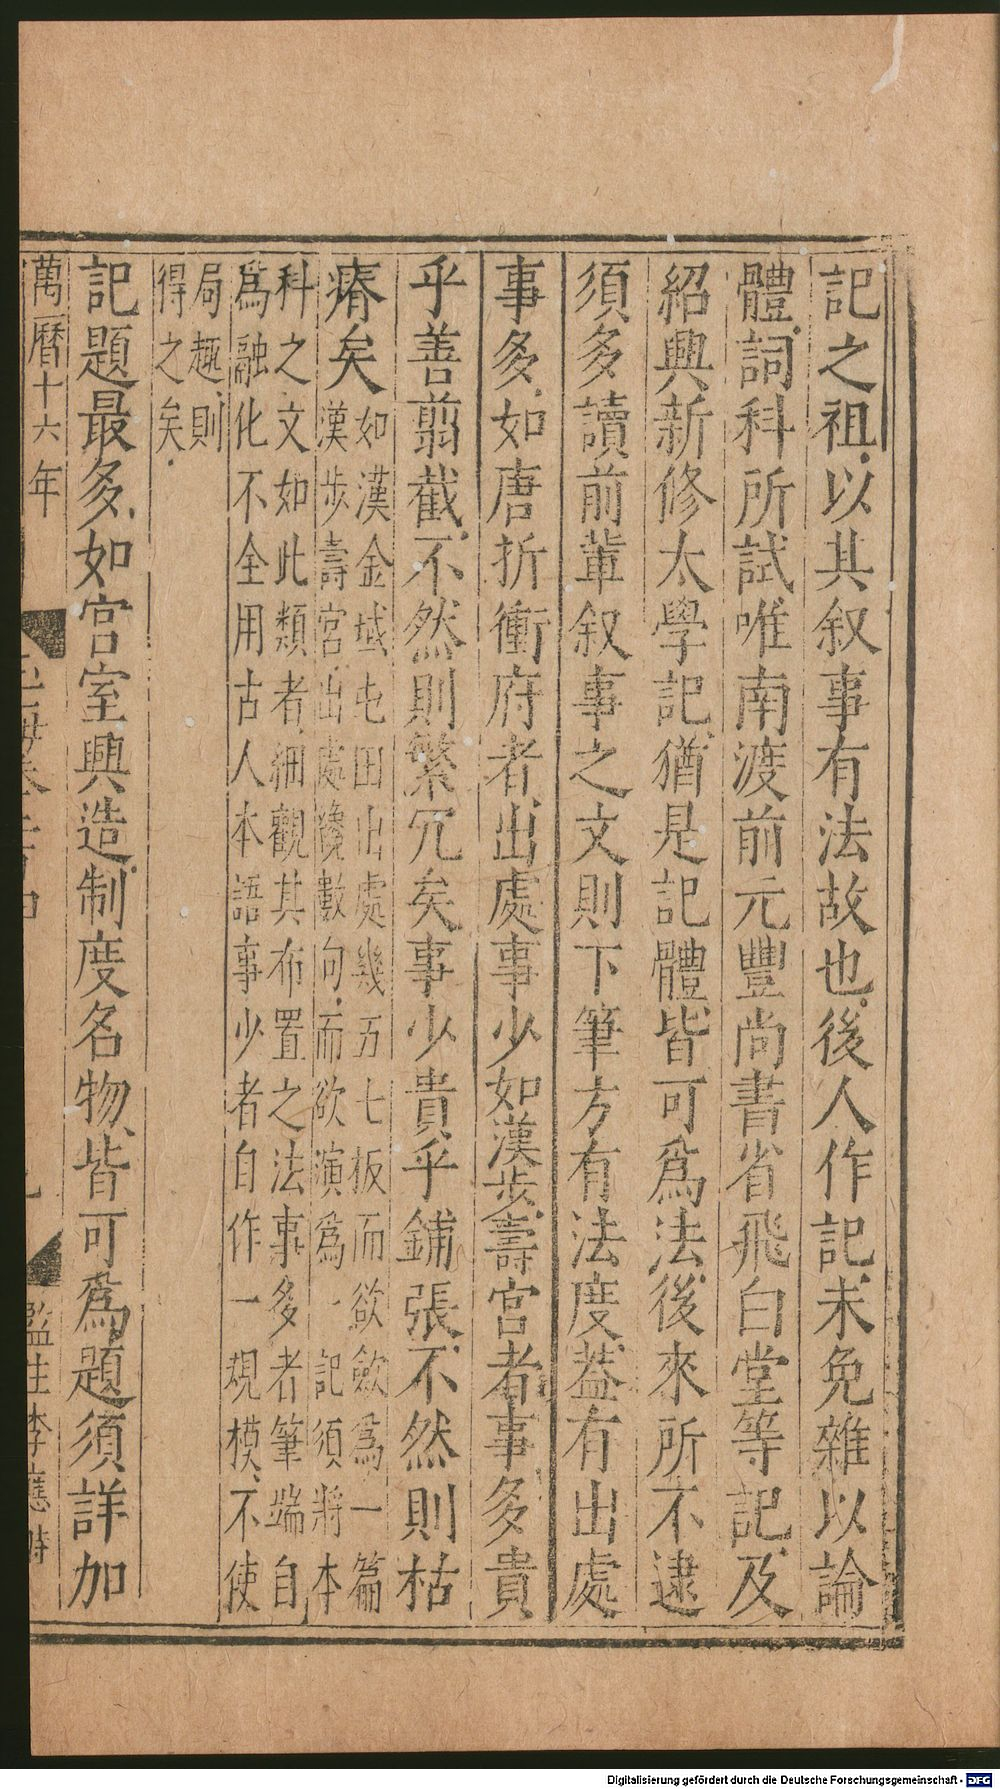 記之祖以其叙事有法故也後人作記未免雜以論
體詞科所試唯南渡前元豐尚書省飛白堂等記及
紹興新修太學記猶是記體皆可爲法後來所不逮
須多讀前輩叙事之文則下筆方有法度蓋有出處
事多如唐折衝府者出處事少如漢步壽宮者事多貴
乎善翦截不然則繁冗矣事少貴乎鋪張不然則枯
瘠矣
如漢金城屯田出處幾五七板而欲歛爲一篇
漢步壽宮出處纔數句而欲演爲一記須將本
科之文如此類者細觀其布置之法事多者筆端自
爲融化不全用古人本語事少者自作一規模不使
局趣則
得之矣
記題最多如宮室興造制度名物皆可爲題須詳加
萬曆十六年
監生李應
Digitalisierung gefördert durch die Deutsche Forschungsgemeinschaft - DFG